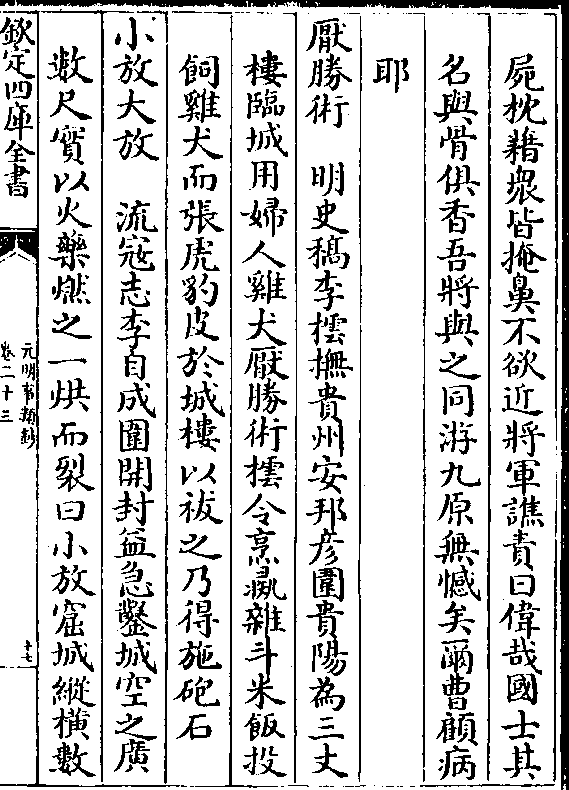 屍枕藉衆皆掩鼻不欲近將軍譙責曰偉哉國士其
名與骨俱香吾將與之同游九原無憾矣爾曹顧病
耶
厭勝術　明史稿李橒撫貴州安邦彥圍貴陽為三丈
樓臨城用婦人雞犬厭勝術橒令烹彘雜斗米飯投
飼雞犬而張虎豹皮於城樓以祓之乃得施砲石
小放大放　流寇志李自成圍開封益急鑿城空之廣
數尺實以火藥燃之一烘而裂曰小放窟城縱橫數
欽定四庫全書
元明事類鈔
卷二十三
十七